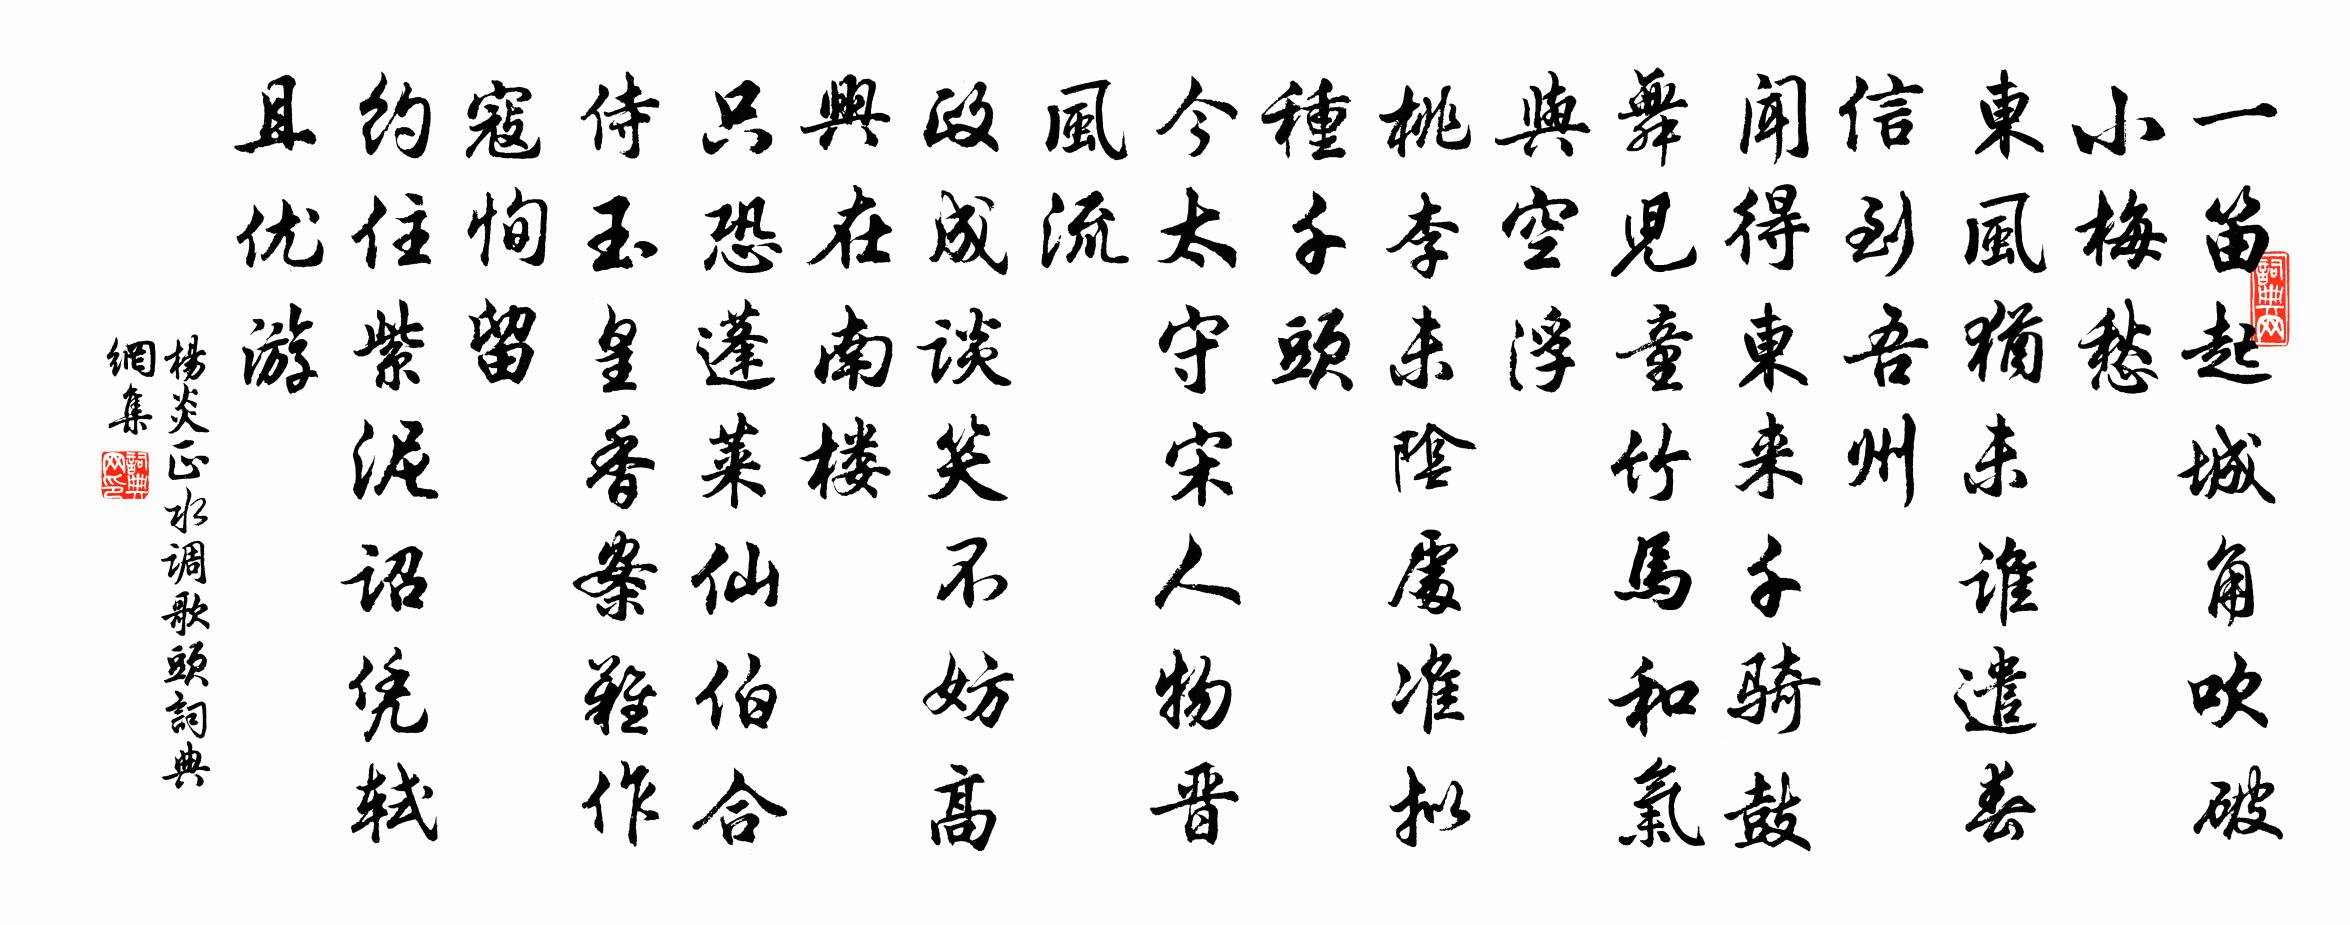 一笛起城角吹破
小梅愁
東風猶未誰遣春
信到吾州
聞得東来千骑鼓
舞兒童竹馬和氣
與空浮
桃李未陰處准拟
種千頭
今太守宋人物晋
風流
政成谈笑不妨高
興在南楼
只恐蓬莱仙伯合
侍玉皇香案難作
寇恂留
约住紫泥诏凭轼
且优游
楊炎正水调歌頭詞典
網集
詞典网
詞典网印